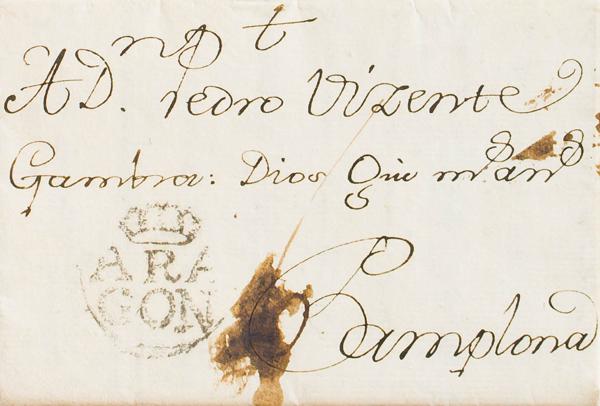 A D. Pedro Vizente
Gambra: Dios Gũe ms. as.
ARA
GON
Pamplona